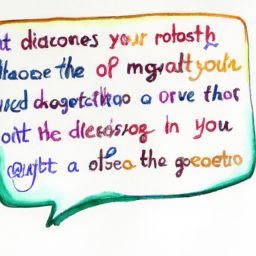 t diacones your rotosth
Haose the of mgattyouln
wed dogotckhoo a orve thor
oit the dlecosog in you
a ofsea the goeoeto